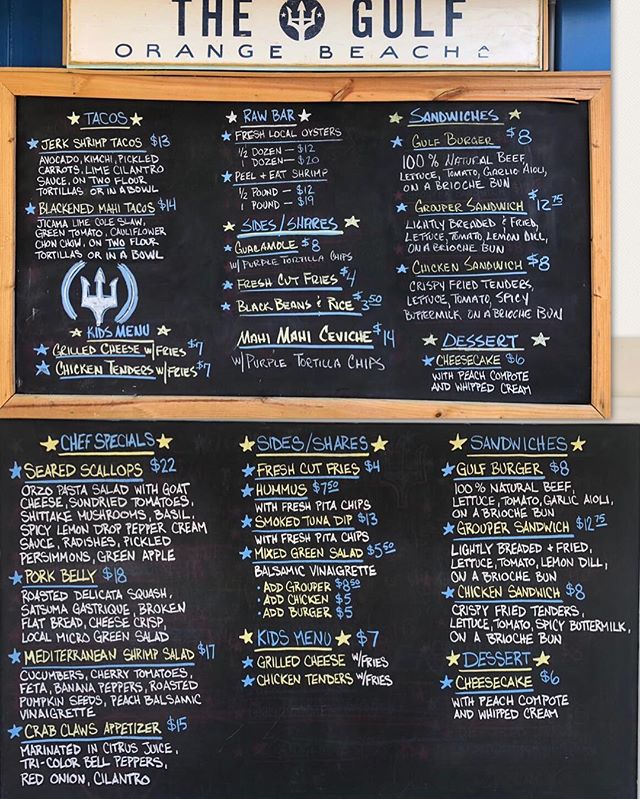 THE GULF
ORANGE BEACH
TACOS
JERK SHRIMP TACOS $13
AVOCADO, KIMCHI, PICKLED
CARROTS, LIME CILANTRO
SAUCE, ON TWO FLOUR
TORTILLAS OR IN A BOWL
BLACKENED MAHI TACOS $14
JICAMA LIME COLE SLAW,
GREEN TOMATO, CAULIFLOWER
CHOW CHOW, ON TWO FLOUR
TORTILLAS OR IN A BOWL
KIDS MENU
GRILLED CHEESE W/FRIES $7
CHICKEN TENDERS W/FRIES $7
RAW BAR
FRESH LOCAL OYSTERS
1/2 DOZEN — $12
1 DOZEN — $20
PEEL + EAT SHRIMP
1/2 POUND — $12
1 POUND — $19
SIDES/SHARES
GUACAMOLE $8
W/PURPLE TORTILLA CHIPS
FRESH CUT FRIES $4
BLACK BEANS & RICE $3.50
MAHI MAHI CEVICHE $14
W/PURPLE TORTILLA CHIPS
SANDWICHES
GULF BURGER $8
100% NATURAL BEEF,
LETTUCE, TOMATO, GARLIC AIOLI,
ON A BRIOCHE BUN
GROUPER SANDWICH $12.75
LIGHTLY BREADED & FRIED,
LETTUCE, TOMATO, LEMON DILL,
ON A BRIOCHE BUN
CHICKEN SANDWICH $8
CRISPY FRIED TENDERS,
LETTUCE, TOMATO, SPICY
BUTTERMILK, ON A BRIOCHE BUN
DESSERT
CHEESECAKE $6
WITH PEACH COMPOTE
AND WHIPPED CREAM
CHEF SPECIALS
SEARED SCALLOPS $22
ORZO PASTA SALAD WITH GOAT
CHEESE, SUNDRIED TOMATOES,
SHITTAKE MUSHROOMS, BASIL
SPICY LEMON DROP PEPPER CREAM
SAUCE, RADISHES, PICKLED
PERSIMMONS, GREEN APPLE
PORK BELLY $18
ROASTED DELICATA SQUASH,
SATSUMA GASTRIQUE, BROKEN
FLAT BREAD, CHEESE CRISP,
LOCAL MICRO GREEN SALAD
MEDITERRANEAN SHRIMP SALAD $17
CUCUMBERS, CHERRY TOMATOES,
FETA, BANANA PEPPERS, ROASTED
PUMPKIN SEEDS, PEACH BALSAMIC
VINAIGRETTE
CRAB CLAWS APPETIZER $15
MARINATED IN CITRUS JUICE,
TRI-COLOR BELL PEPPERS,
RED ONION, CILANTRO
SIDES/SHARES
FRESH CUT FRIES $4
HUMMUS $7.50
WITH FRESH PITA CHIPS
SMOKED TUNA DIP $13
WITH FRESH PITA CHIPS
MIXED GREEN SALAD $5.50
BALSAMIC VINAIGRETTE
· ADD GROUPER $8.50
· ADD CHICKEN $5
· ADD BURGER $5
KIDS MENU $7
GRILLED CHEESE W/FRIES
CHICKEN TENDERS W/FRIES
SANDWICHES
GULF BURGER $8
100% NATURAL BEEF,
LETTUCE, TOMATO, GARLIC AIOLI,
ON A BRIOCHE BUN
GROUPER SANDWICH $12.75
LIGHTLY BREADED + FRIED,
LETTUCE, TOMATO, LEMON DILL,
ON A BRIOCHE BUN
CHICKEN SANDWICH $8
CRISPY FRIED TENDERS,
LETTUCE, TOMATO, SPICY BUTTERMILK,
ON A BRIOCHE BUN
DESSERT
CHEESECAKE $6
WITH PEACH COMPOTE
AND WHIPPED CREAM